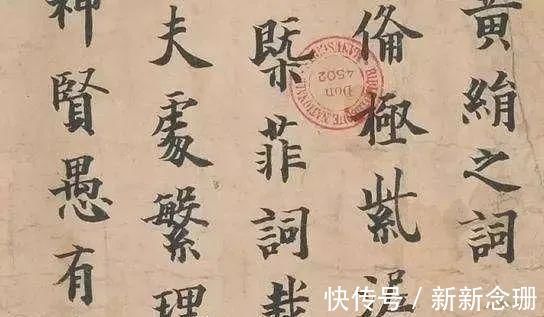 黄絹之詞
俻極紫泥
既菲詞
夫處繁理
神賢愚有
Don
4502
快传号 / 新新念珊